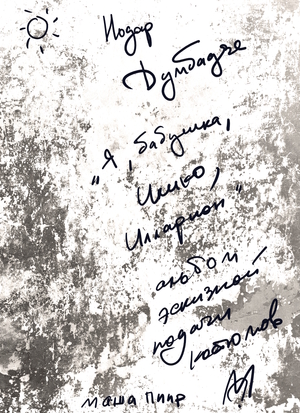 Нодар
Думбадзе
„Я, бабушка,
Илико,
Илларион"
альбом
эскизной
подачи
костюмов
Маша Пиир